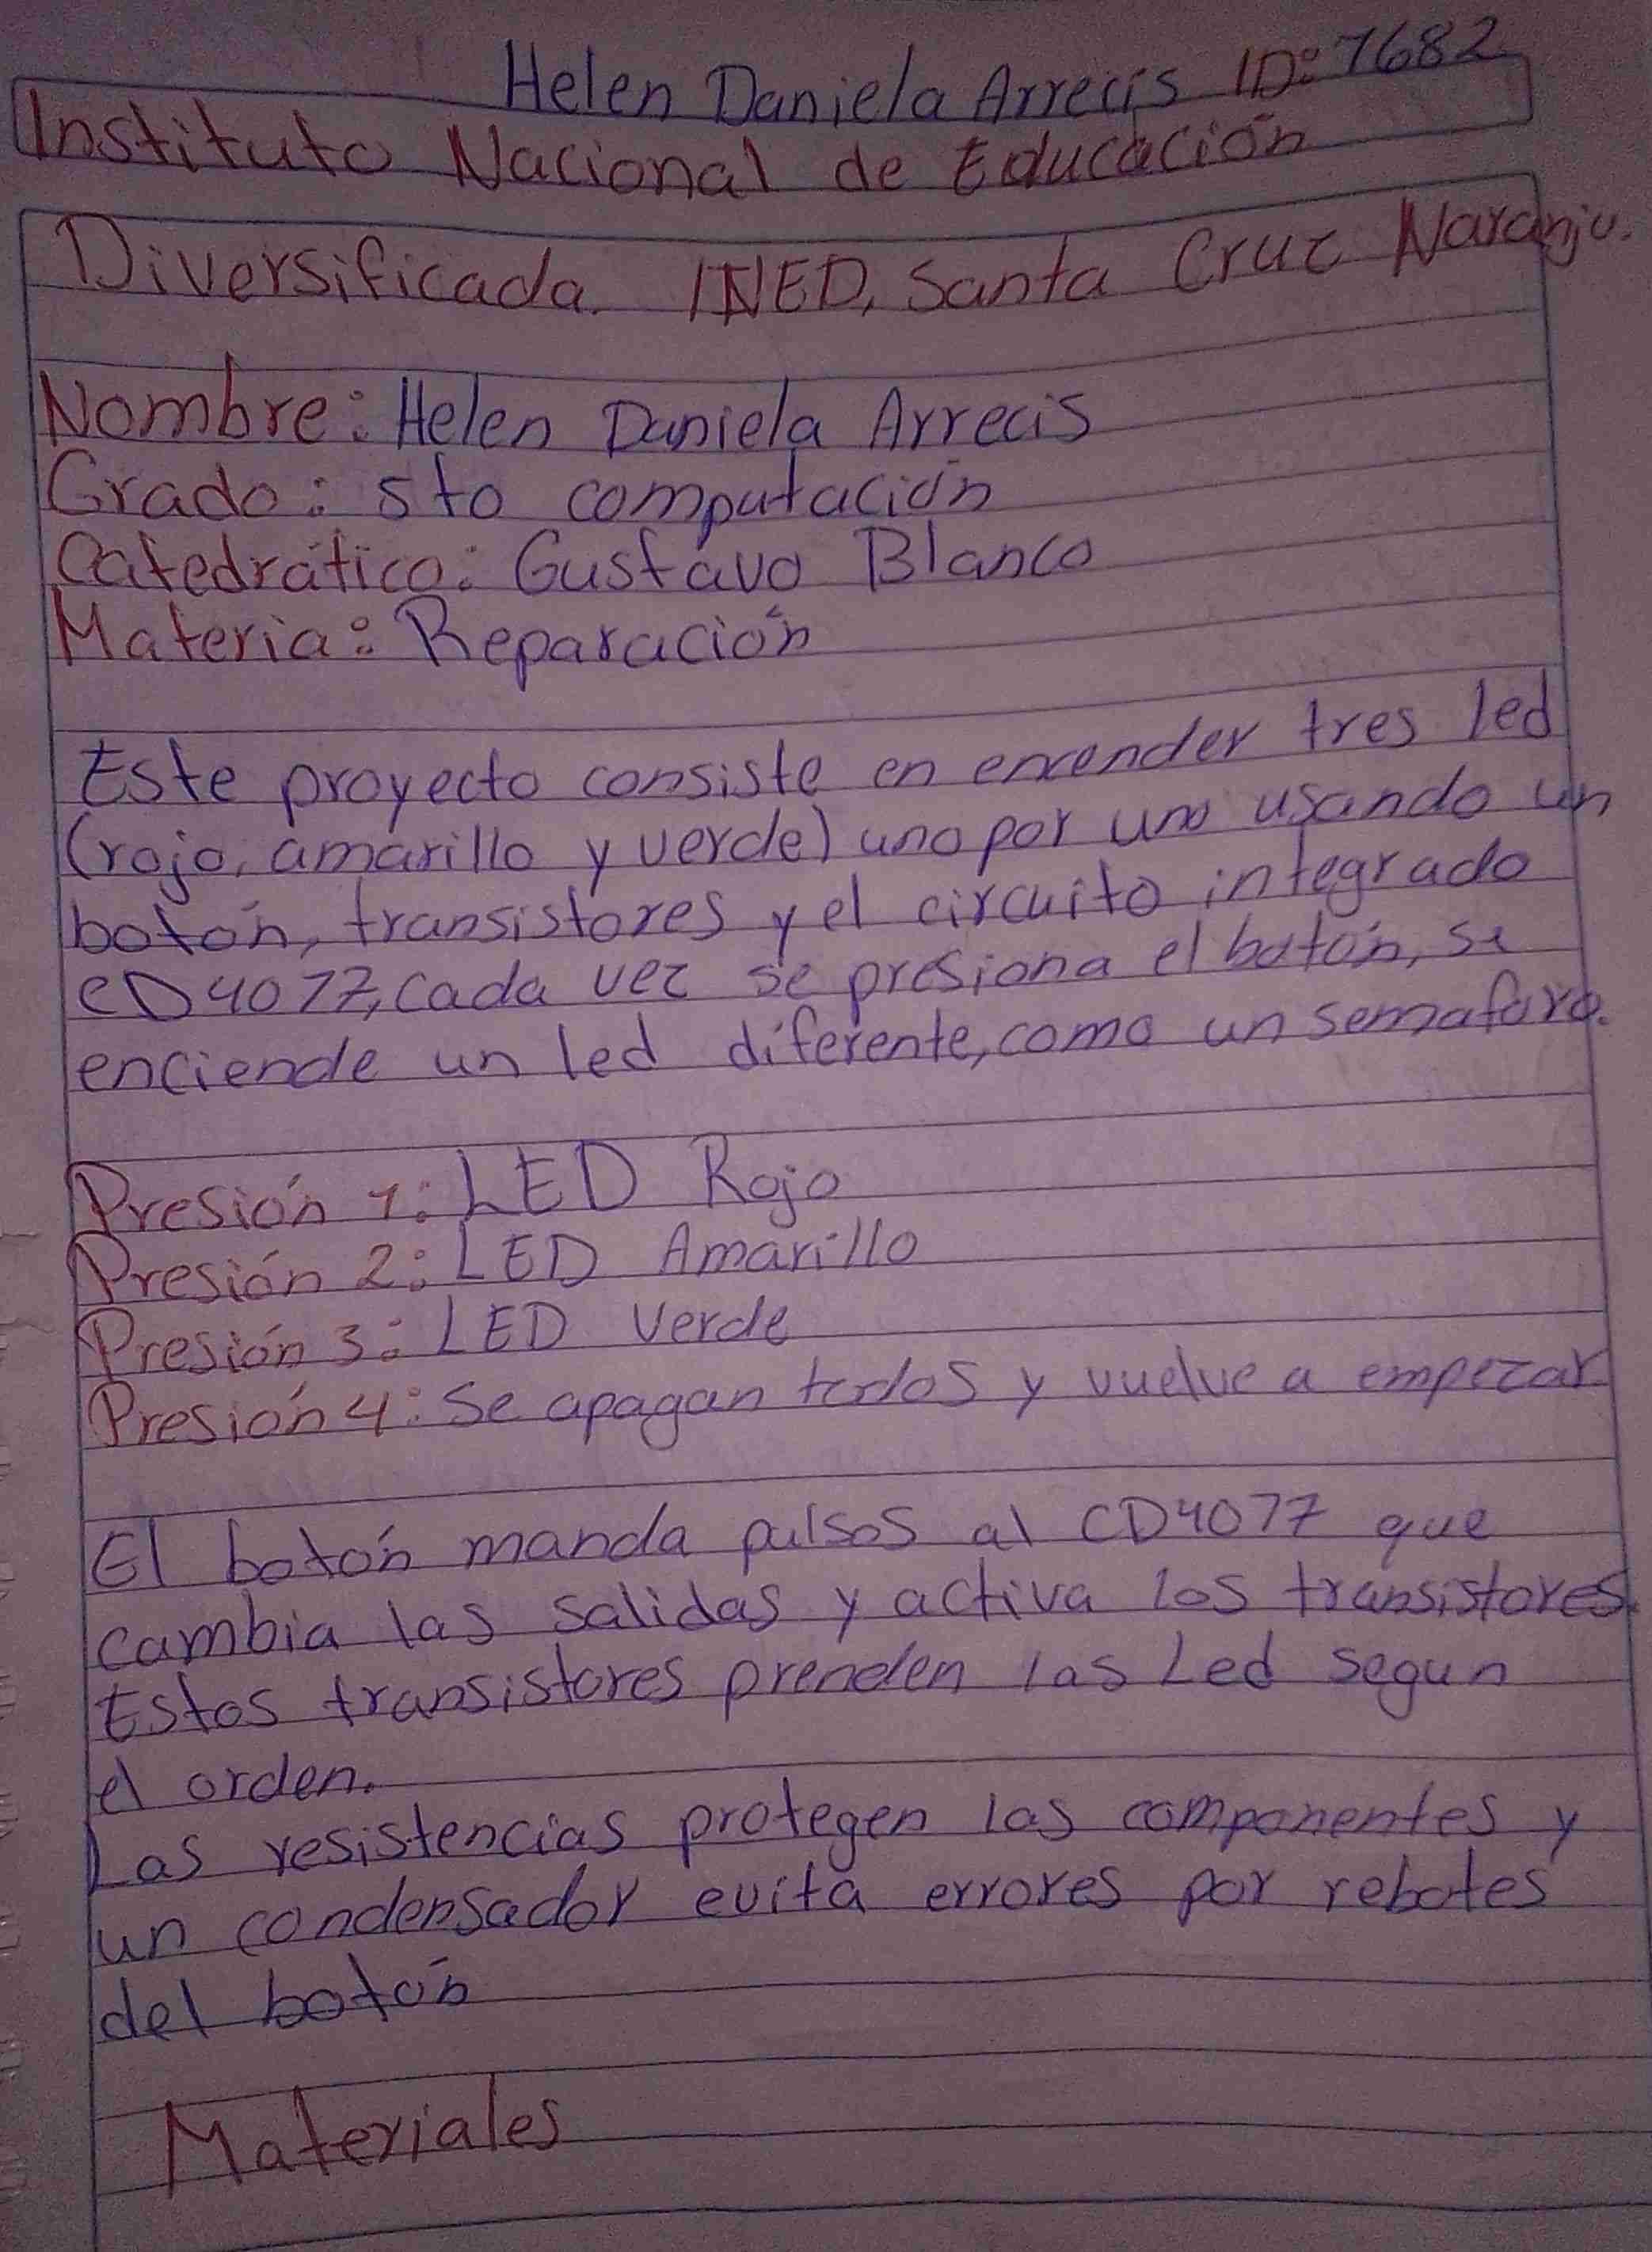 Helen Daniela Arrecis ID: 7682
Instituto Nacional de Educación
Diversificada. INED, Santa Cruz Naranjo.
Nombre: Helen Daniela Arrecis
Grado: 5to computación
Catedrático: Gustavo Blanco
Materia: Reparación
Este proyecto consiste en encender tres led
(rojo, amarillo y verde) uno por uno usando un
botón, transistores y el circuito integrado
CD4077, cada vez se presiona el botón, se
enciende un led diferente, como un semaforo.
Presión 1: LED Rojo
Presión 2: LED Amarillo
Presión 3: LED Verde
Presión 4: Se apagan todos y vuelve a empezar
El botón manda pulsos al CD4077 que
cambia las salidas y activa los transistores.
Estos transistores prenden las Led segun
el orden.
Las resistencias protegen los componentes y
un condensador evita errores por rebotes
del botón
Materiales